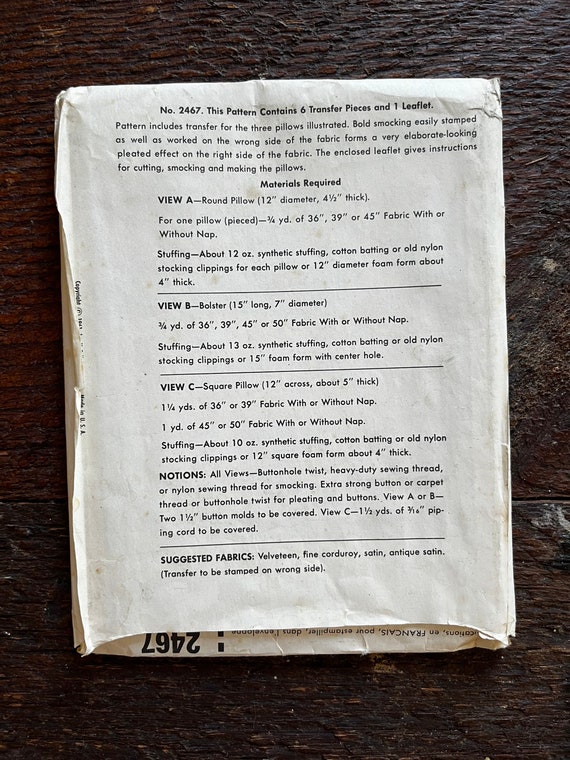 No. 2467. This Pattern Contains 6 Transfer Pieces and 1 Leaflet.
Pattern includes transfer for the three pillows illustrated. Bold smocking easily stamped
as well as worked on the wrong side of the fabric forms a very elaborate-looking
pleated effect on the right side of the fabric. The enclosed leaflet gives instructions
for cutting, smocking and making the pillows.
Materials Required
VIEW A—Round Pillow (12" diameter, 4½" thick).
For one pillow (pieced)—¾ yd. of 36", 39" or 45" Fabric With or
Without Nap.
Stuffing—About 12 oz. synthetic stuffing, cotton batting or old nylon
stocking clippings for each pillow or 12" diameter foam form about
4" thick.
VIEW B—Bolster (15" long, 7" diameter)
¾ yd. of 36", 39", 45" or 50" Fabric With or Without Nap.
Stuffing—About 13 oz. synthetic stuffing, cotton batting or old nylon
stocking clippings or 15" foam form with center hole.
VIEW C—Square Pillow (12" across, about 5" thick)
1¼ yds. of 36" or 39" Fabric With or Without Nap.
1 yd. of 45" or 50" Fabric With or Without Nap.
Stuffing—About 10 oz. synthetic stuffing, cotton batting or old nylon
stocking clippings or 12" square foam form about 4" thick.
NOTIONS: All Views—Buttonhole twist, heavy-duty sewing thread,
or nylon sewing thread for smocking. Extra strong button or carpet
thread or buttonhole twist for pleating and buttons. View A or B—
Two 1½" button molds to be covered. View C—1½ yds. of 3/16" pip-
ing cord to be covered.
SUGGESTED FABRICS: Velveteen, fine corduroy, satin, antique satin.
(Transfer to be stamped on wrong side).
Copyright ©
Made in U.S.A.
2467
ications, en FRANÇAIS, pour estampiller, dans l'enveloppe